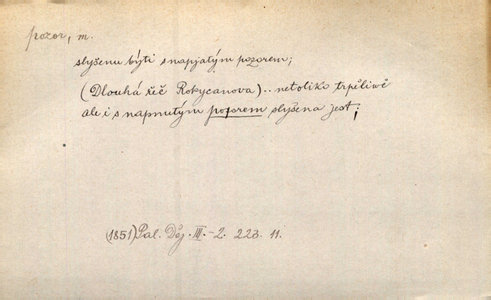 pozor, m.
slyšenu býti s napjatým pozorem;
(Dlouhá řeč Rokycanova).. netoliko trpělivě
ale i s napnutým pozorem slyšena jest;
(1851) Pal. Děj. III.-2. 223. 11.